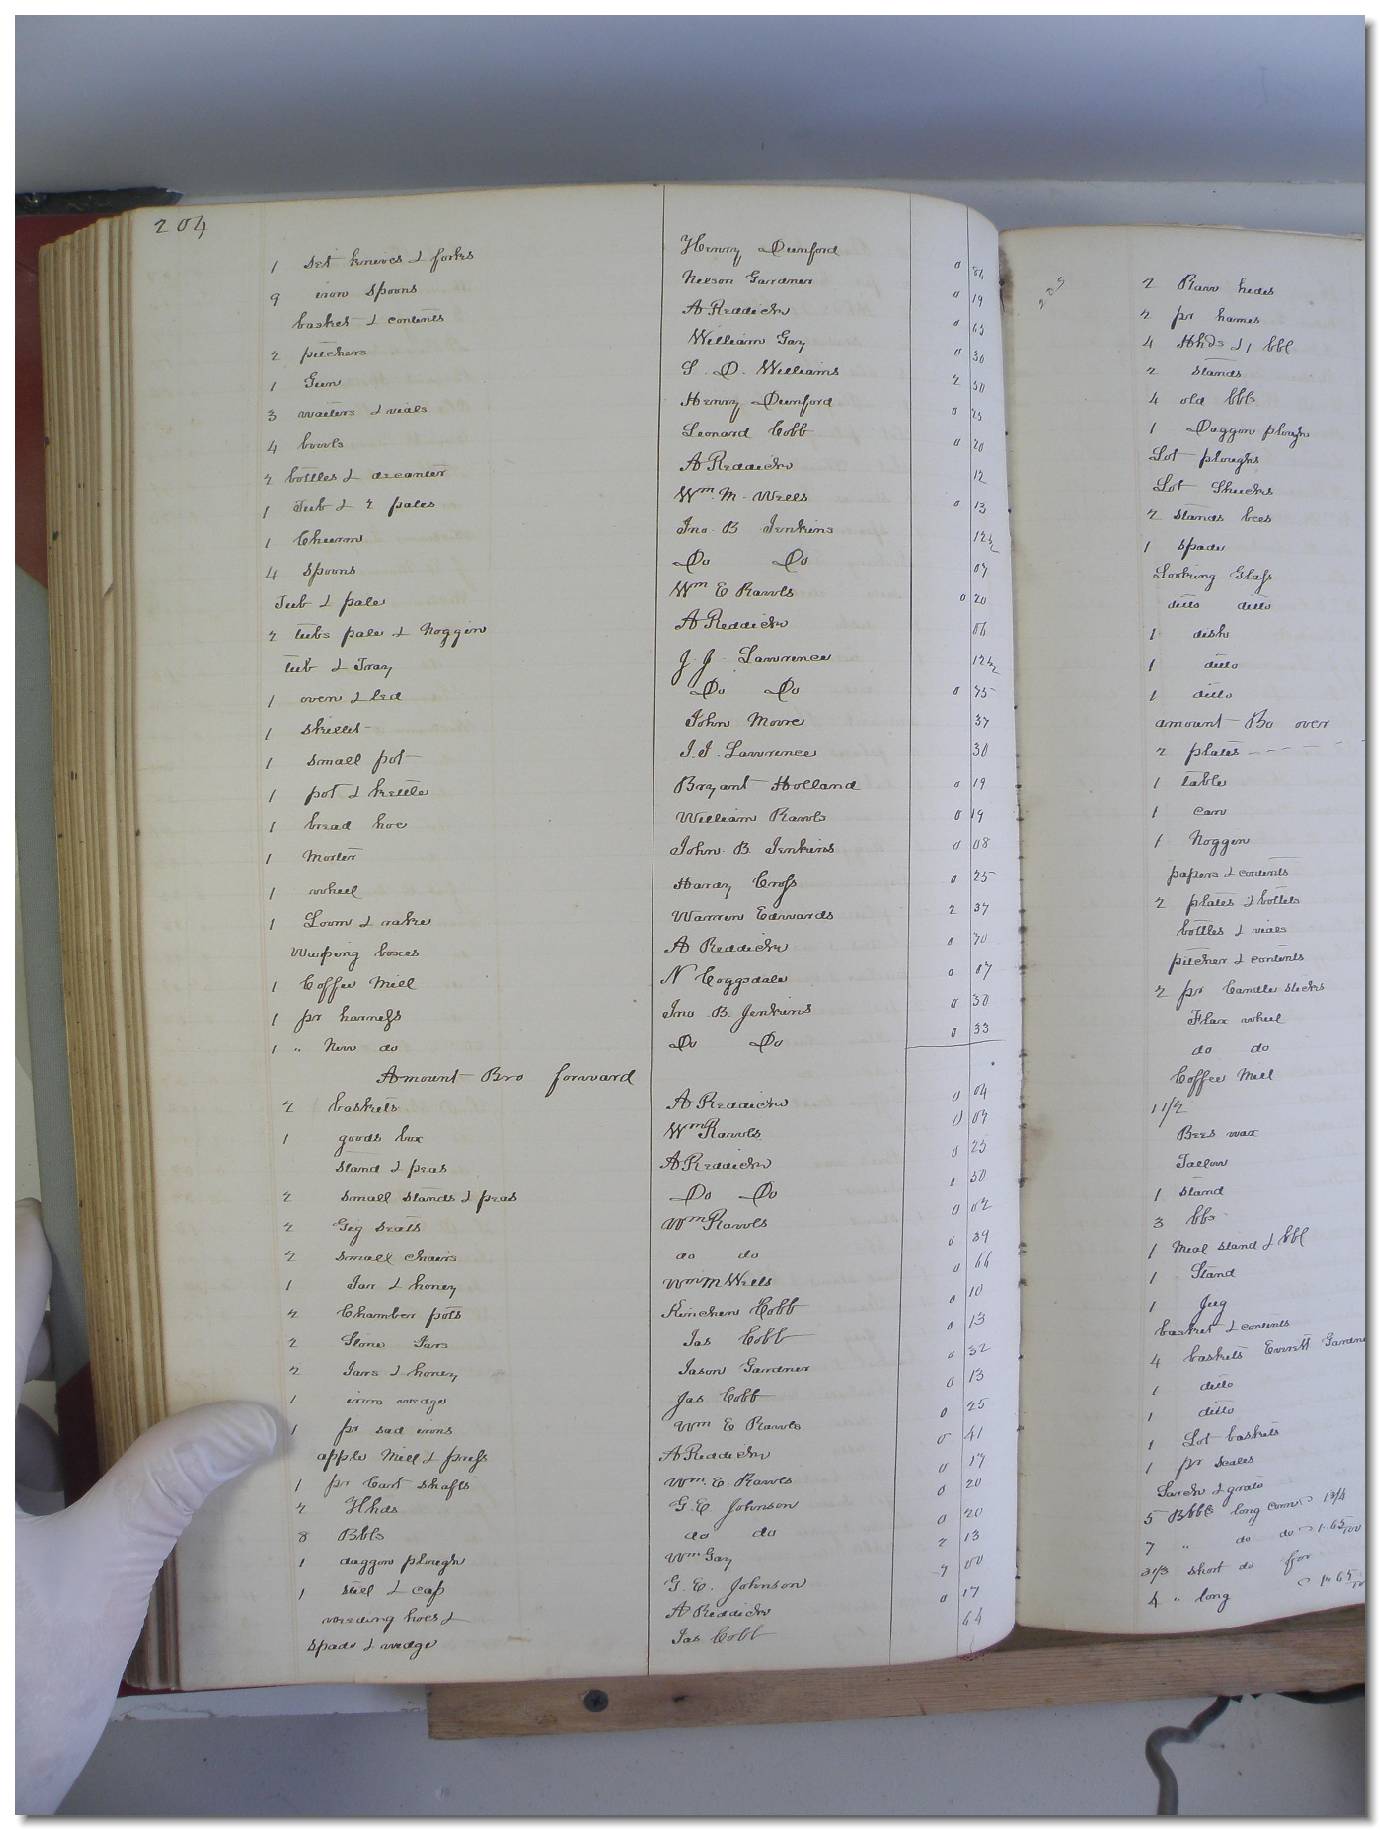 204
1 Set knives & forks Henry Dunford 0
9 iron Spoons Nelson Gardner 0 19
basket & contents A Reddick 0 65
2 pitchers William Gay 0 30
1 Gun S. D. Williams 2 50
3 waiters & vials Henry Dunford 0 25
4 bowls Leonard Cobb 0 20
2 bottles & decanter A Reddick 12
1 Tub & 2 pales Wm. M. Wells 0 13
1 Churn Jno. B Jenkins 12½
4 Spoons Do Do 07
Tub & pale Wm E Rawls 0 20
2 tubs pale & Noggin A Reddick 06
tub & Tray J. J. Lawrence 12½
1 oven & led Do Do 0 75
1 skillet John Moore 37
1 small pot J. J. Lawrence 30
1 pot & kettle Bryant Holland 0 19
1 bread hoe William Rawls 0 19
1 Morter John B. Jenkins 0 08
1 wheel Hardy Cross 0 25
1 Loom & rake Warren Edwards 2 37
Warping boxes A Reddick 0 70
1 Coffee Mill N Coggsdale 0 07
1 pr harness Jno. B. Jenkins 0 30
1 " New do Do Do 0 33
Amount Bro forward
2 baskets A Reddick 0 04
1 goods box Wm Rawls 0 07
Stand & peas A Reddick 0 25
2 small stands & peas Do Do 1 50
2 Gig seats Wm Rawls 0 02
2 small chairs do do 0 39
1 Jar & honey Wm M Wells 0 66
2 Chamber pots Kinchen Cobb 0 10
2 Stone Jars Jas Cobb 0 13
2 Jars & honey Jason Gardner 0 32
1 iron wedge Jas Cobb 0 13
1 pr sad irons Wm E Rawls 0 25
apple Mill & press A Reddick 0 41
1 pr Cart shafts Wm. E Rawls 0 17
2 Hhds G. E. Johnson 0 20
8 Bbls do do 0 20
1 daggon plough Wm Gay 2 13
1 still & cap G. E. Johnson 7 00
weeding hoes & A Reddick 0 17
Spade & wedge Jas Cobb 64
205
2 Raw hides
2 pr hames
4 Hhds & 1 bbl
2 stands
4 old bbls
1 Daggon plough
Lot ploughs
Lot Shucks
2 Stands bees
1 Spade
Looking Glass
ditto ditto
1 dish
1 ditto
1 ditto
amount Bo over
2 plates
1 table
1 can
1 Noggin
papers & contents
2 plates & bottles
bottles & vials
pitcher & contents
2 pr Candle sticks
Flax wheel
do do
Coffee Mill
1 1/2
Bees wax
Tallow
1 Stand
3 bbs
1 Meal Stand & bbl
1 Stand
1 Jug
basket & contents
4 baskets Everett
1 ditto
1 ditto
1 Lot baskets
1 pr scales
5 Bbls long corn
7 " do do
short do
4 " long